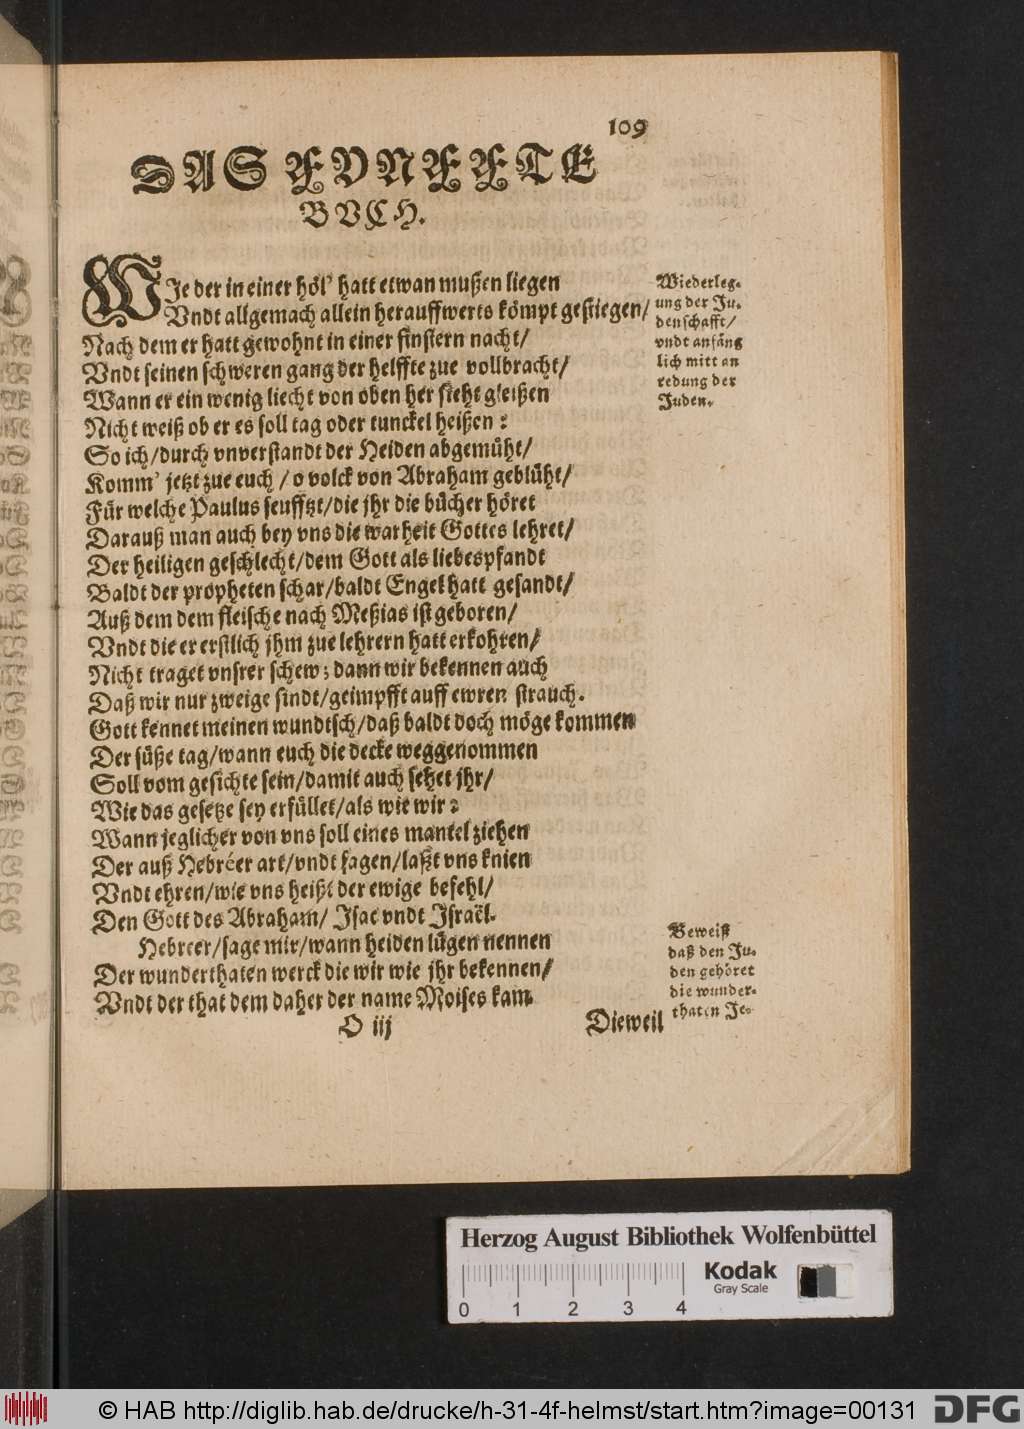 109
DAS FVNFFTE
BVCH.
WIe der in einer höl' hatt etwan mußen liegen
Vndt allgemach allein herauffwerts kömpt gestiegen/
Nach dem er hatt gewohnt in einer finstern nacht/
Vndt seinen schweren gang der helffte zue vollbracht/
Wann er ein wenig liecht von oben her sieht gleißen
Nicht weiß ob er es soll tag oder tunckel heißen:
So ich/durch vnverstandt der Heiden abgemüht/
Komm' jetzt zue euch/o volck von Abraham geblüht/
Für welche Paulus seufftzt/die jhr die bücher höret
Darauß man auch bey vns die warheit Gottes lehret/
Der heiligen geschlecht/dem Gott als liebespfandt
Baldt der propheten schar/baldt Engel hatt gesandt/
Auß dem dem fleische nach Meßias ist geboren/
Vndt die er erstlich jhm zue lehrern hatt erkohren/
Nicht traget vnsrer schew; dann wir bekennen auch
Daß wir nur zweige sindt/geimpfft auff ewren strauch.
Gott kennet meinen wundtsch/daß baldt doch möge kommen
Der süße tag/wann euch die decke weggenommen
Soll vom gesichte sein/damit auch sehet jhr/
Wie das gesetze sey erfüllet/als wie wir:
Wann jeglicher von vns soll eines mantel ziehen
Der auß Hebréer art/vndt sagen/laßt vns knien
Vndt ehren/wie vns heißt der ewige befehl/
Den Gott des Abraham/ Isac vndt Israël.
Hebreer/sage mir/wann heiden lügen nennen
Der wunderthaten werck die wir wie jhr bekennen/
Vndt der that dem daher der name Moises kam
O iij
Dieweil
Wiederleg-
ung der Ju-
denschafft/
vndt anfäng
lich mitt an
redung der
Juden.
Beweist
daß den Ju-
den gehöret
die wunder-
thaten Je-
Herzog August Bibliothek Wolfenbüttel
Kodak
Gray Scale
0 1 2 3 4
© HAB http://diglib.hab.de/drucke/h-31-4f-helmst/start.htm?image=00131
DFG